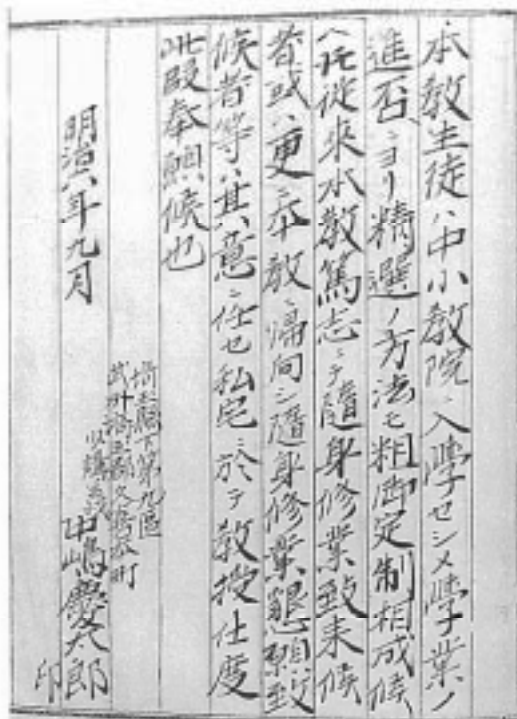 本教生徒ハ中小教院ニ入學セシメ學業ノ
進否ニヨリ精選ノ方法モ粗御定制相成候
ヘ共従来本教篤志ニテ隨身修業致来候
者或ハ更ニ本教ニ帰向シ隨身修業懇願致
候者等ハ其意ニ任セ私宅ニ於テ教授仕度
此段奉願候也
明治六年九月
縣下第九區
武州
中嶋慶太郎
印